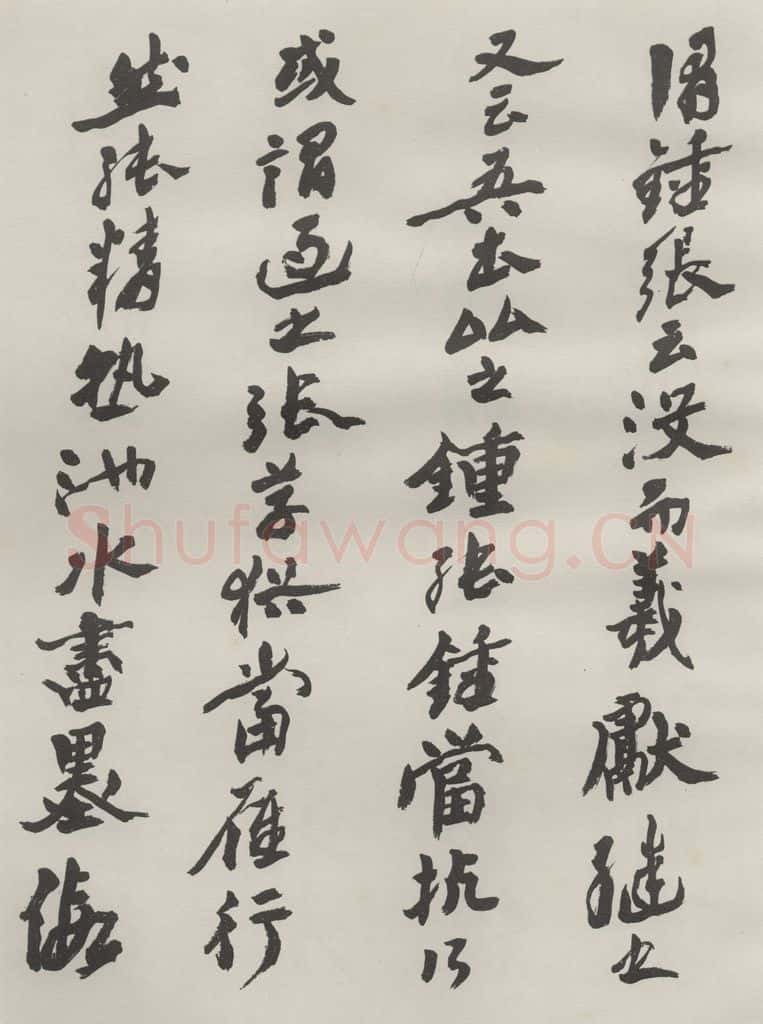 謂鍾張云沒而羲獻繼之
又云吾書比之鍾張鍾當抗行
或謂過之張草猶當雁行
然張精熟池水盡墨假
Shufawang.CN